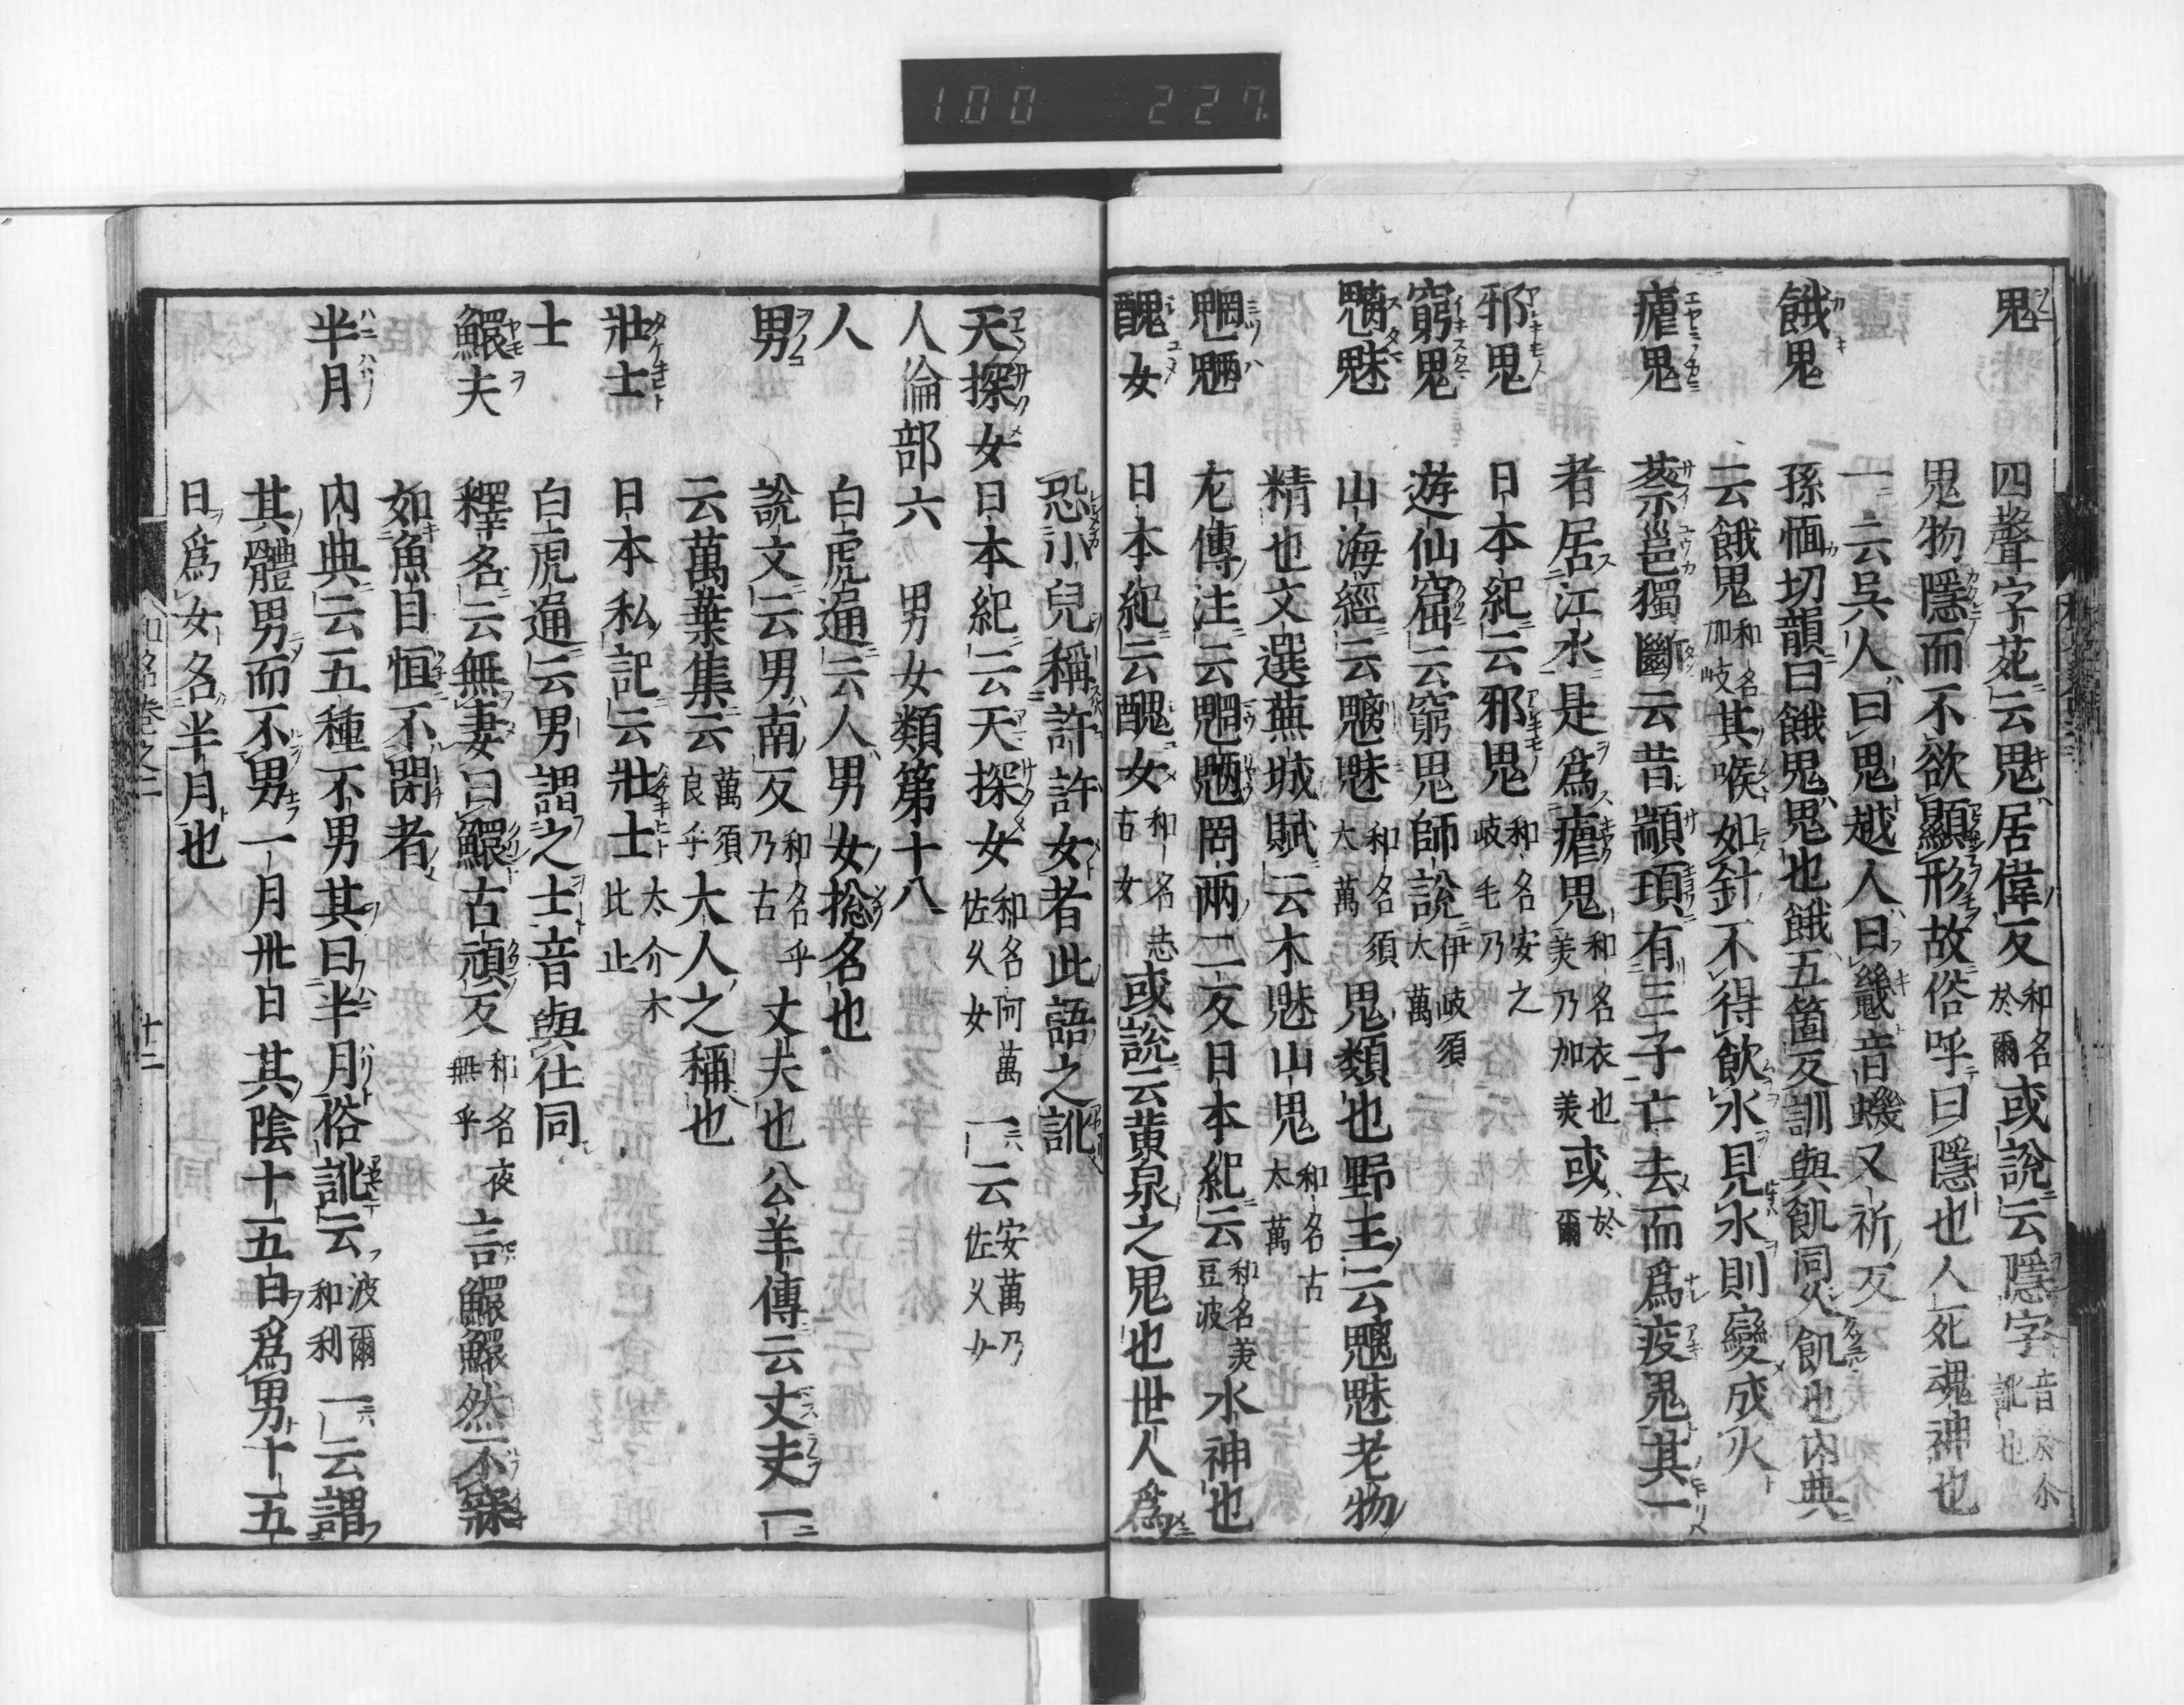 100 227
鬼 四聲字苑云鬼居偉反 和名於爾 或說云隱字 音於尓訛也
鬼物隱而不欲顯形故俗呼曰隱也人死魂神也
一云吳人曰鬼越人曰䰧音蟣又祈反
餓鬼 孫愐切韻曰餓鬼鬼也餓五箇反訓與飢同久飢也內典
云餓鬼 和名加岐 其喉如針不得飲水見水則變成火
瘧鬼 蔡邕獨斷云昔顓頊有三子亡去而爲疫鬼其一
者居江水是爲瘧鬼 和名衣也美乃加美 或 於爾
邪鬼 日本紀云邪鬼 和名安之岐毛乃
窮鬼 遊仙窟云窮鬼師說 伊岐須太萬
魑魅 山海經云魑魅 和名須太萬 鬼類也野王云魑魅老物
精也文選蕪城賦云木魅山鬼 和名古太萬
魍魎 左傳注云魍魎罔兩二反日本紀云 和名美豆波 水神也
醜女 日本紀云醜女 和名志古女 或說云黃泉之鬼也世人爲
恐小兒稱許許女者此語之訛
天探女 日本紀云天探女 和名阿萬佐久女 一云 安萬乃佐久女
人倫部六 男女類第十八
人 白虎通云人男女捴名也
男 說文云男南反 和名乎乃古 丈夫也公羊傳云丈夫一
云萬葉集云 萬須良乎 大人之稱也
壯士 日本私記云壯士 太介木比止
士 白虎通云男謂之士音與仕同
鰥夫 釋名云無妻曰鰥古頑反 和名夜無乎 言鰥鰥然不寐
如魚目恒不閉者
半月 內典云五種不男其曰半月俗訛云 波爾和利 一云謂
其體男而不男一月卅日其陰十五日爲男十五
日爲女名半月也
和名卷之二 十二